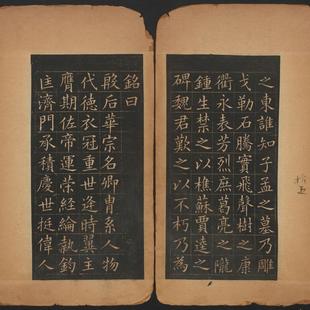 之東誰知子孟之墓乃雕
戈勒石騰實飛聲樹之康
衢永表芳烈庶葛亮之隴
鍾生禁之以樵蘇賈逵之
碑魏君歎之以不朽乃為
銘曰
殷后華宗名卿胄系人物
代德衣冠重世逢時翼主
膺期佐帝運策經綸執鈞
匡濟門承積慶世挺偉人